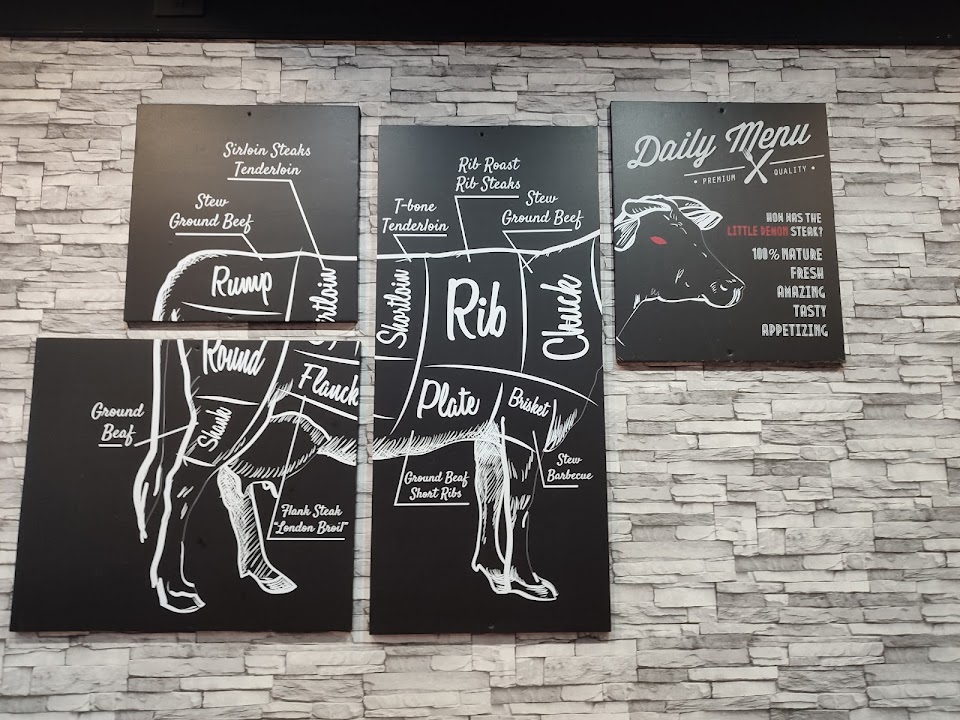 Sirloin Steaks
Tenderloin
Stew
Ground Beef
Rump
Round
Flanck
Shank
Ground
Beaf
"London Broil"
Rib Roast
Rib Steaks
T-bone
Tenderloin
Stew
Ground Beef
Shortloin
Rib
Chuck
Plate
Brisket
Ground Beaf
Short Ribs
Stew
Barbecue
Daily Menu
PREMIUM QUALITY
HOW WAS THE
LITTLE DEMON STEAK?
100% NATURE
FRESH
AMAZING
TASTY
APPETIZING